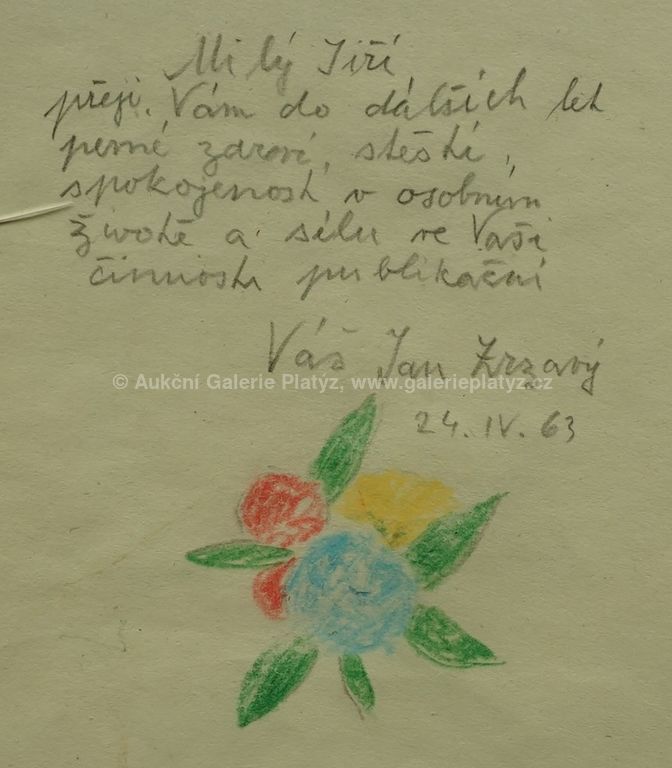 Milý Jiří,
přeji Vám do dalších let
pevné zdraví, štěstí,
spokojenost v osobním
životě a sílu ve Vaší
činnosti publikační
Váš Jan Zrzavý
© Aukční Galerie Platýz, www.galerieplatyz.cz
24. IV. 63